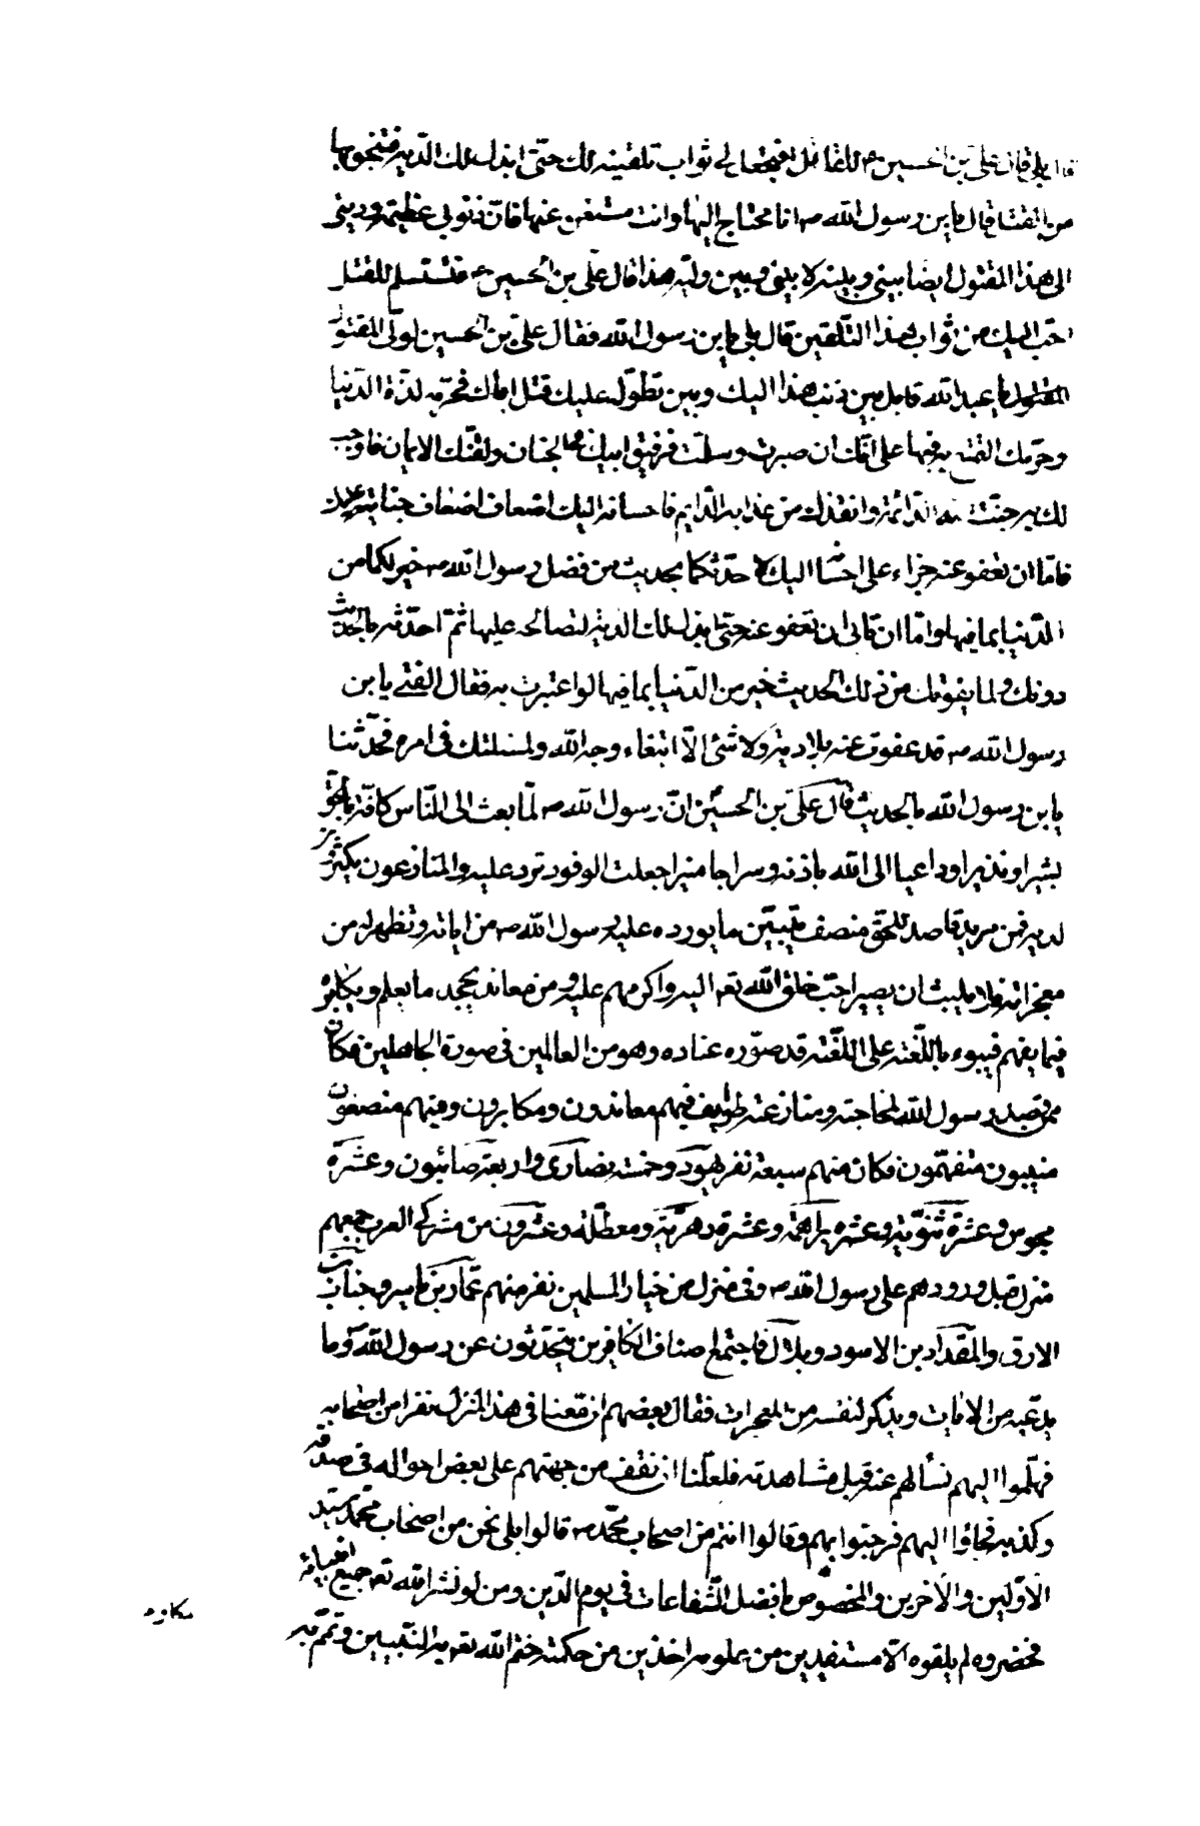 قال بلى قال علي بن الحسين ع للقاتل افتجعل لي ثواب تلقينه لك حتى ابذل لك الدية فتنجو بها
من القتل قال يا بن رسول الله ص انا محتاج اليها وانت مستغن عنها فان ذنوبي عظيمة وذنبي
الى هذا المقتول ايضا بيني وبينه لا بيني وبين وليه هذا قال علي بن الحسين ع فتستسلم للقتل
احب اليك من ثواب هذا التلقين قال بلى يا بن رسول الله فقال علي بن الحسين لولي المقتول
يا عبد الله قابل بين ذنب هذا اليك وبين تطوله عليك قتل اباك فحرمه لذة الدنيا
وحرمك التمتع به فيها على انك ان صبرت وسلمت فرفيق ابيك في الجنان ولقنك الايمان فاوجب
لك به جنة الله الدائمة وانقذك من عذابه الدايم فاحسانه اليك اضعاف اضعاف جنايته عليك
فاما ان تعفو عنه جزاء على احسانه اليك لاحدثكما بحديث من فضل رسول الله ص خير لكما من
الدنيا بما فيها واما ان تابى ان تعفو عنه حتى ابذل لك الدية لتصالحه عليها ثم احدثه بالحديث
دونك ولما يفوتك من ذلك الحديث خير من الدنيا بما فيها لو اعتبرت به فقال الفتى يا بن
رسول الله ص قد عفوت عنه بلا دية ولا شئ الا ابتغاء وجه الله ولمسئلتك في امره فحدثنا
يا بن رسول الله بالحديث قال علي بن الحسين ان رسول الله ص لما بعث الى الناس كافة بالحق
بشيرا ونذيرا وداعيا الى الله باذنه وسراجا منيرا جعلت الوفود ترد عليه والمنازعون يكثرون
لديه فمن مريد قاصد للحق منصف متبين ما يورده عليه رسول الله ص من اياته وتظهر له من
معجزاته فلا يلبث ان يصير احب خلق الله تعه اليه واكرمهم عليه ومن معاند يجحد ما يعلم ويكابره
فيما يفهم فيبوء باللعنة على اللعنة قد صوره عناده وهو من العالمين في صورة الجاهلين فكان
ممن قصد رسول الله لمحاجته ومنازعته طوايف فيهم معاندون ومكابرون وفيهم منصفون
متبينون متفهمون فكان منهم سبعة نفر يهود وخمسة نصارى واربعة صائبون وعشرة
مجوس وعشرة ثنوية وعشرة براهمة وعشرة دهرية ومعطلة وعشرون من مشركي العرب جمعهم
منزل قبل ورودهم على رسول الله ص وفي منزل من خيار المسلمين نفر منهم عمار بن ياسر وخباب بن
الارت والمقداد بن الاسود وبلال فاجتمع اصناف الكافرين يتحدثون عن رسول الله وما
يدعيه من الايات ويذكر لنفسه من المعجزات فقال بعضهم ان معنا في هذا المنزل نفرا من اصحابه
فهلموا اليهم نسألهم عنه قبل مشاهدته فلعلنا ان نقف من جهتهم على بعض احواله في صدقه
وكذبه فجاؤا اليهم فرحبوا بهم وقالوا انتم من اصحاب محمد ص قالوا بلى نحن من اصحاب محمد سيد
الاولين والاخرين والمخصوص بافضل الشفاعات في يوم الدين ومن لو نشر الله تعه جميع انبيائه
فحضروه لم يلقوه الا مستفيدين من علومه اخذين من حكمته ختم الله تعه به النبيين وتمم به
مكارم